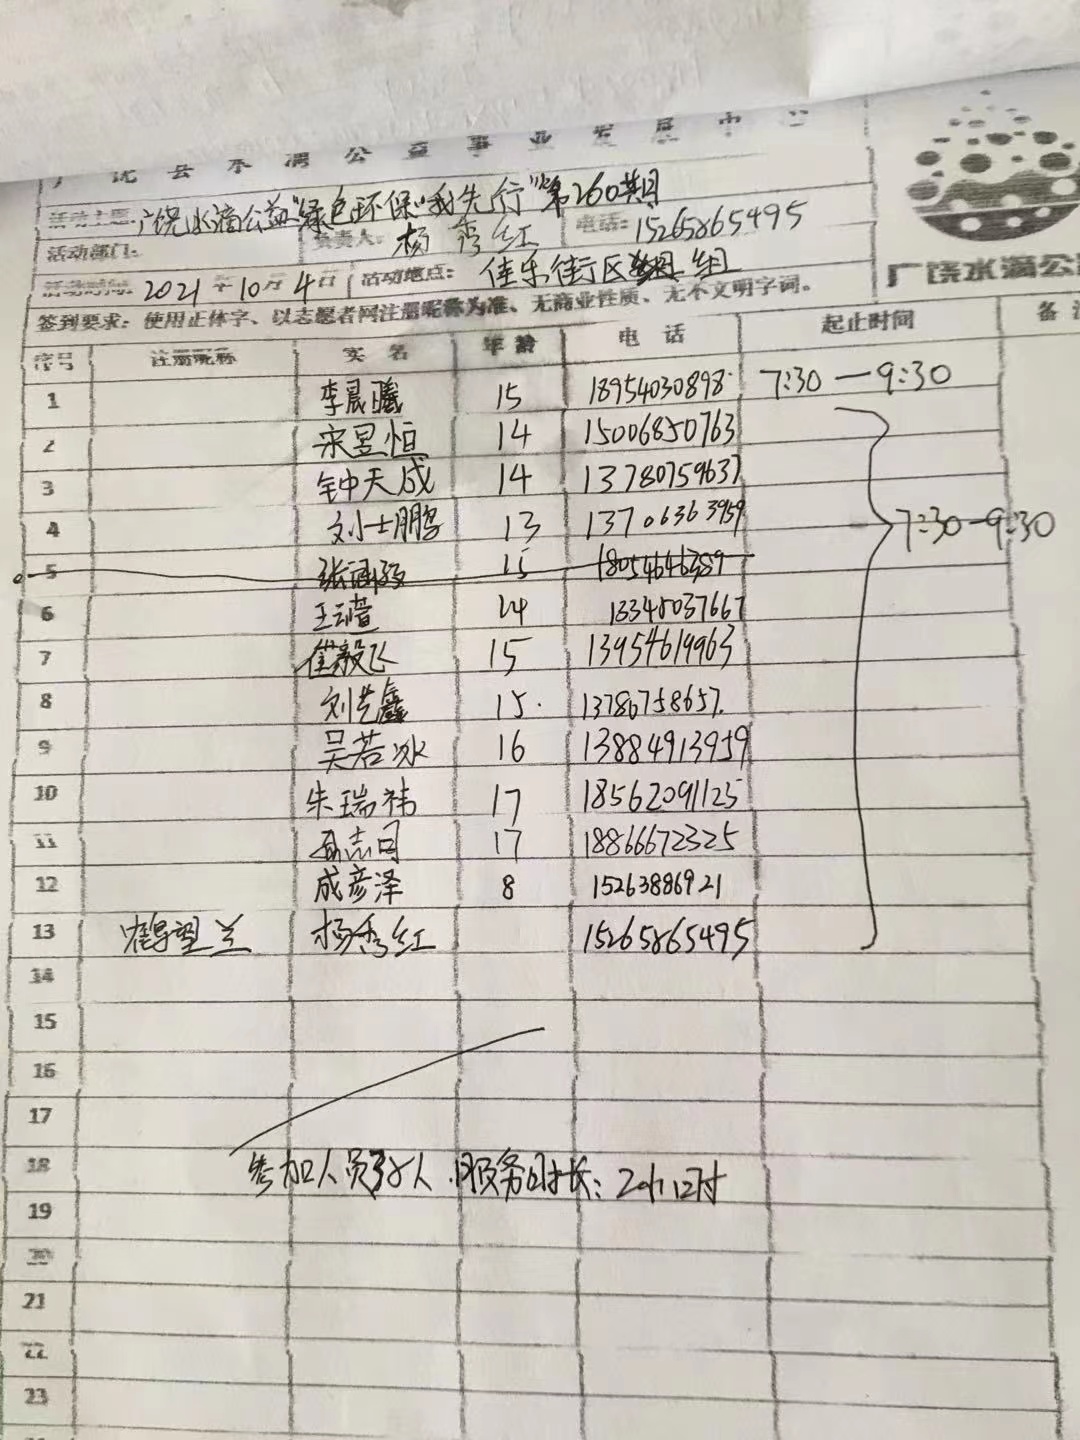 广饶县水滴公益事业发展中心
活动主题: 广饶水滴公益“绿色环保“我先行”第260期
活动部门: 负责人: 杨秀红 电话: 15265865495
活动时间: 2021年10月4日 活动地点: 佳乐街区 组
签到要求: 使用正体字、以志愿者网注册昵称为准、无商业性质、无不文明字词。
广饶水滴公
序号 注册昵称 实名 年龄 电话 起止时间 备注
1 李晨曦 15 18954030898 7:30—9:30
2 宋昱恒 14 15006850763
3 钟天成 14 13780759637
4 刘士鹏 13 13706363959 7:30—9:30
5 15 18054646389
6 王 13345037667
7 崔毅飞 15 13954619963
8 刘艺鑫 15 13780758657
9 吴若冰 16 13884913959
10 朱瑞祎 17 18562091125
11 志同 17 18866672325
12 成彦泽 8 15263886921
13 鹤望兰 杨秀红 15265865495
14
15
16
17
18 参加人员 人.服务时长: 2小时
19
20
21
22
23